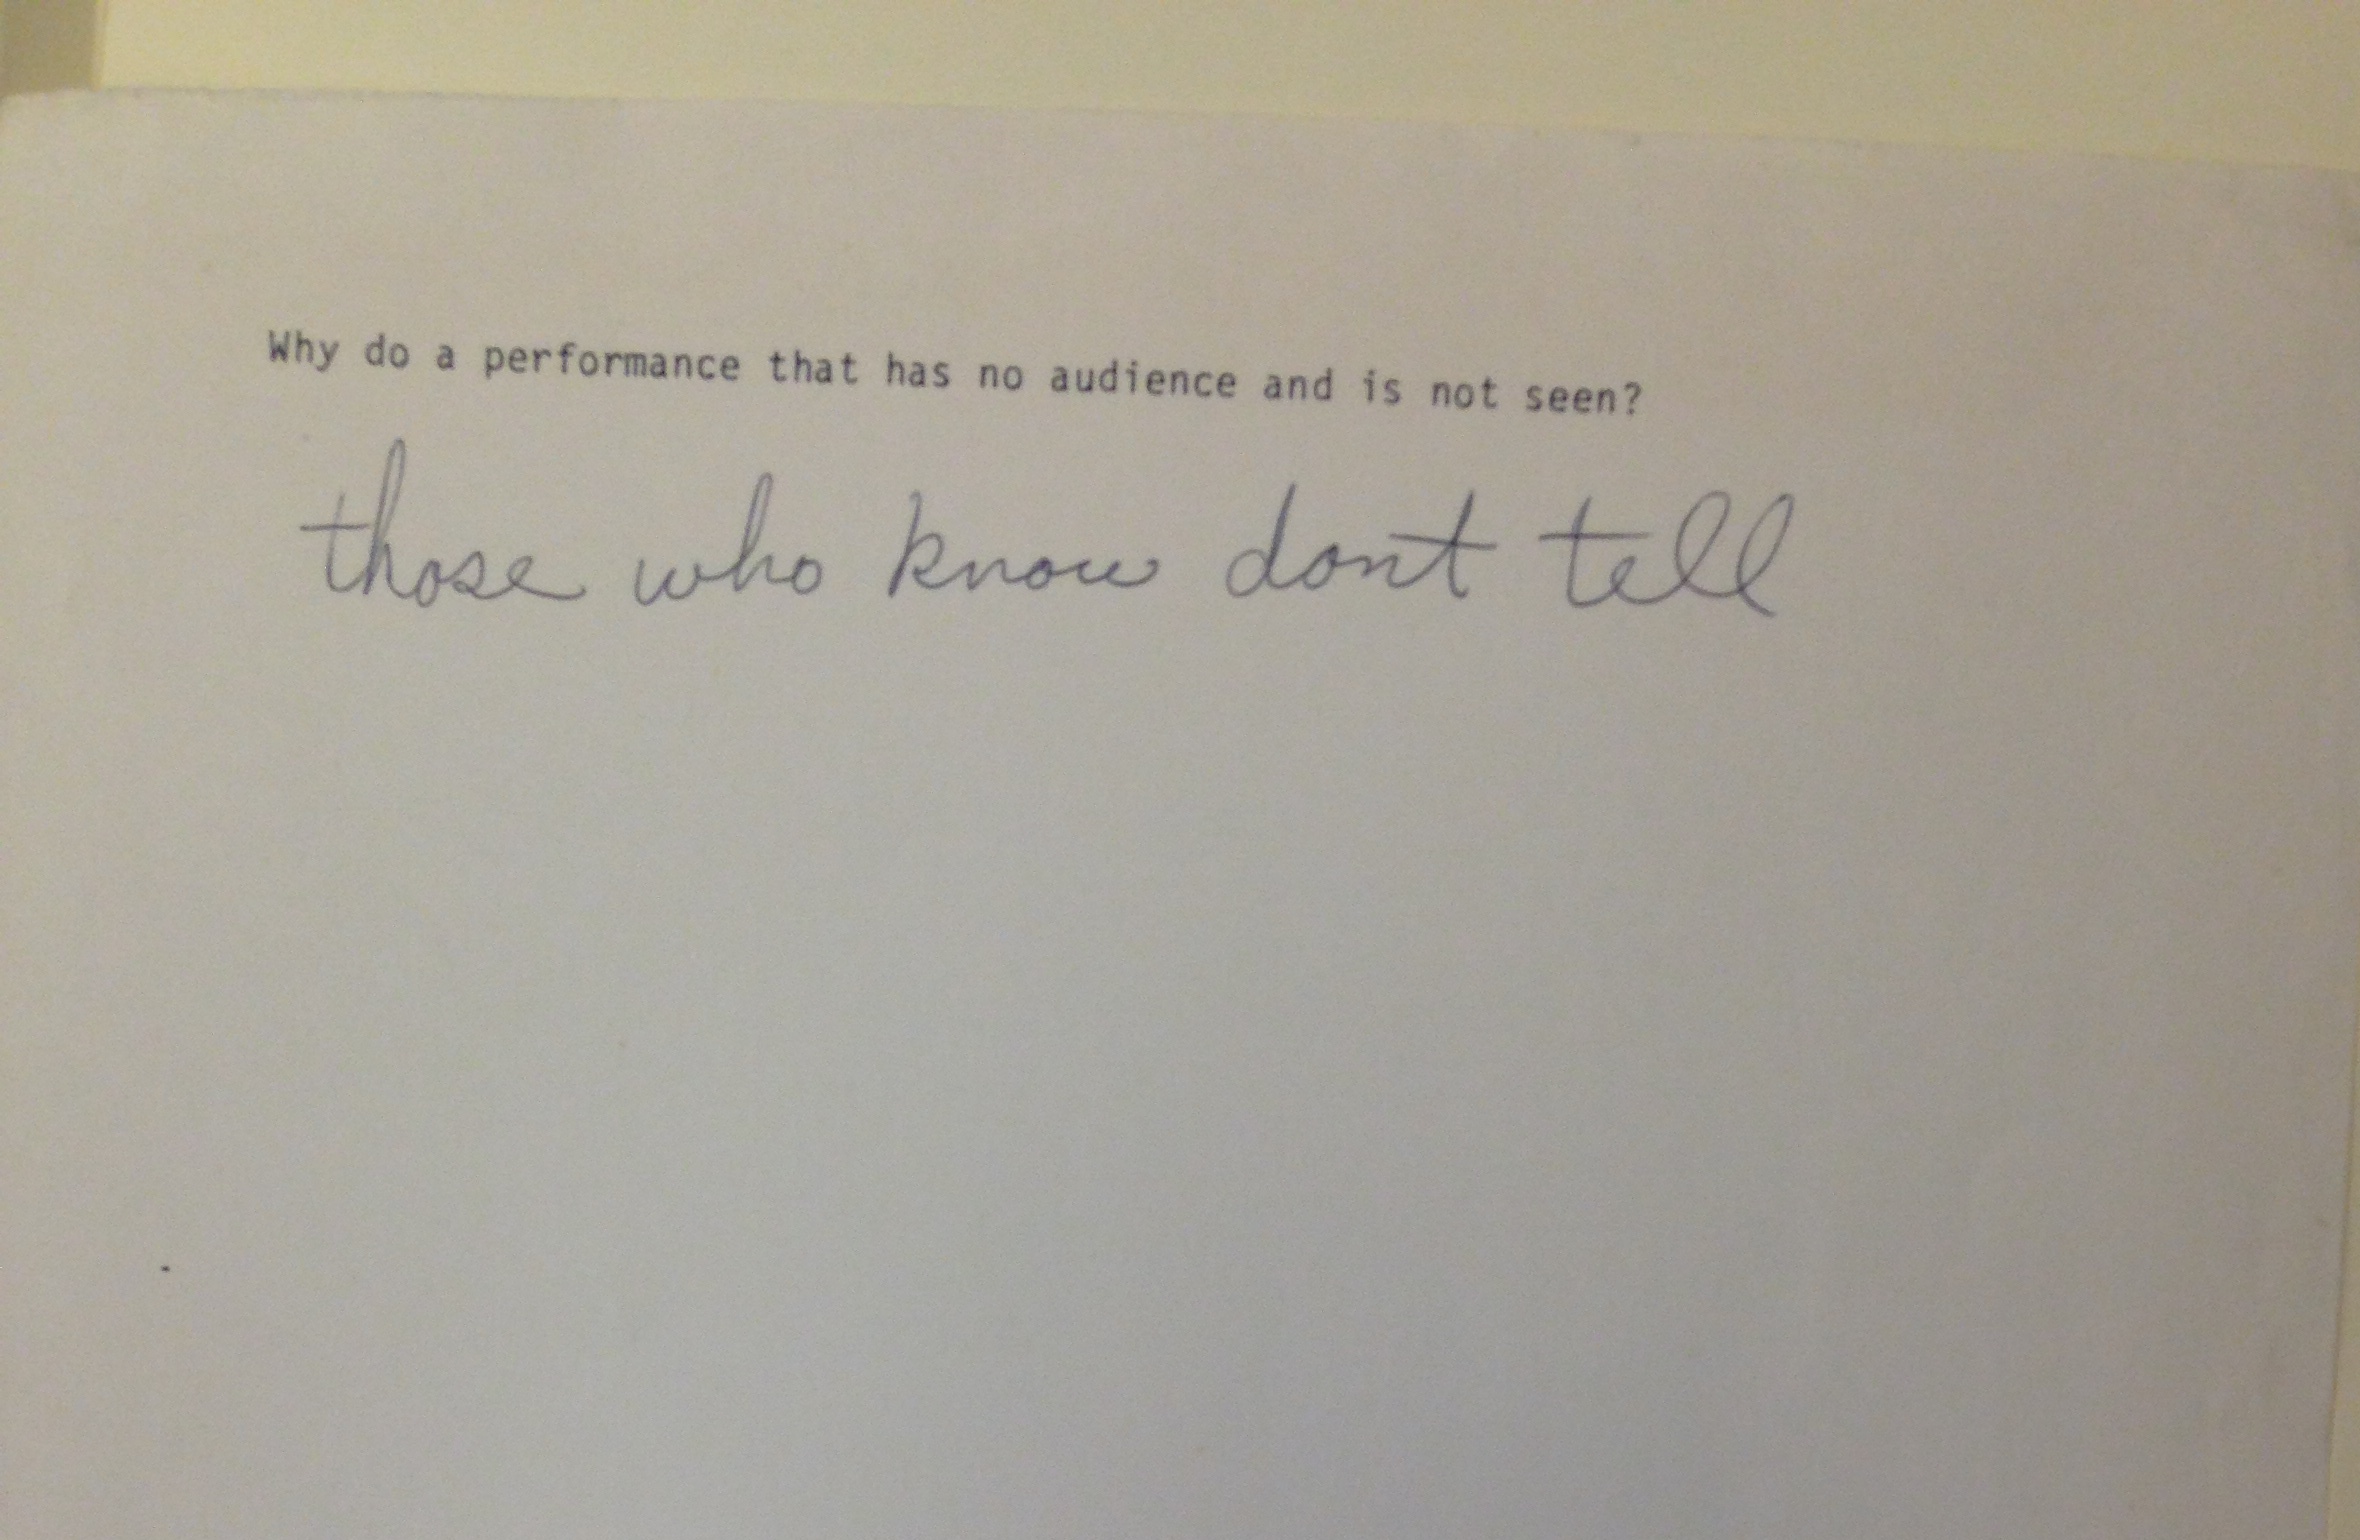 Why do a performance that has no audience and is not seen?
those who know don't tell